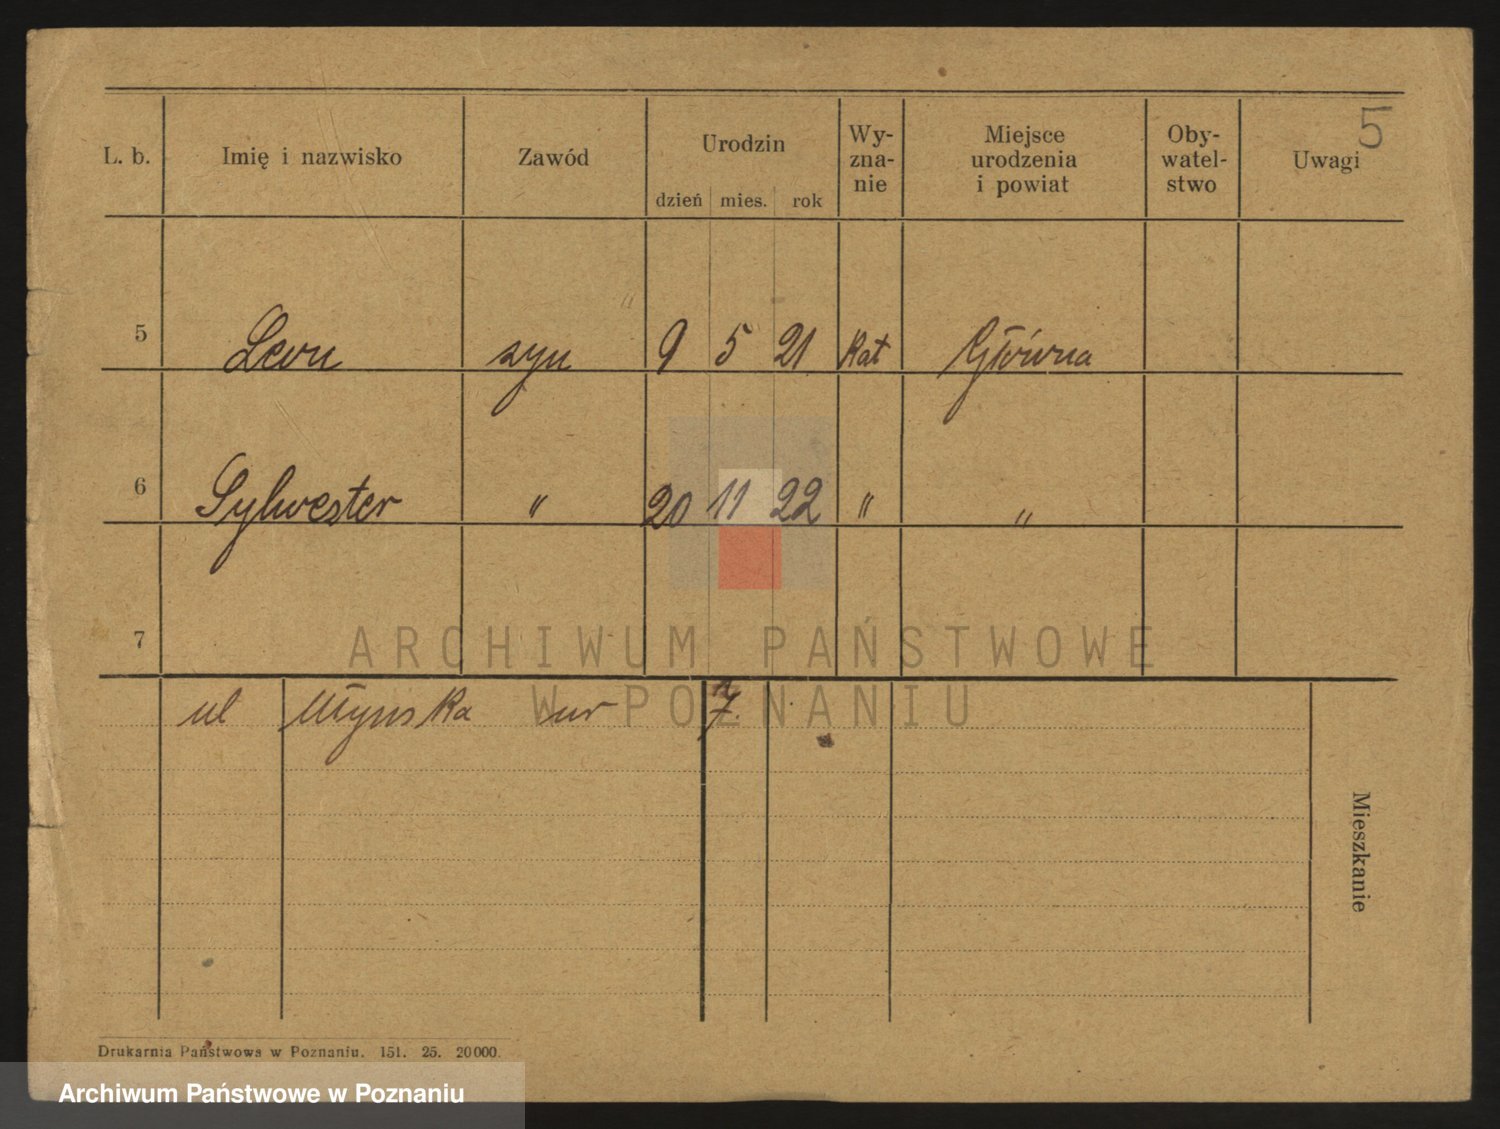 5
L. b. Imię i nazwisko Zawód Urodzin dzień mies. rok Wy-zna-nie Miejsce urodzenia i powiat Oby-watel-stwo Uwagi
5 Leon syn 9 5 21 kat Główna
6 Sylwester " 20 11 22 " "
7
ul Młyńska nr 7.
Mieszkanie
ARCHIWUM PAŃSTWOWE
W POZNANIU
Drukarnia Państwowa w Poznaniu. 151. 25. 20000.
Archiwum Państwowe w Poznaniu